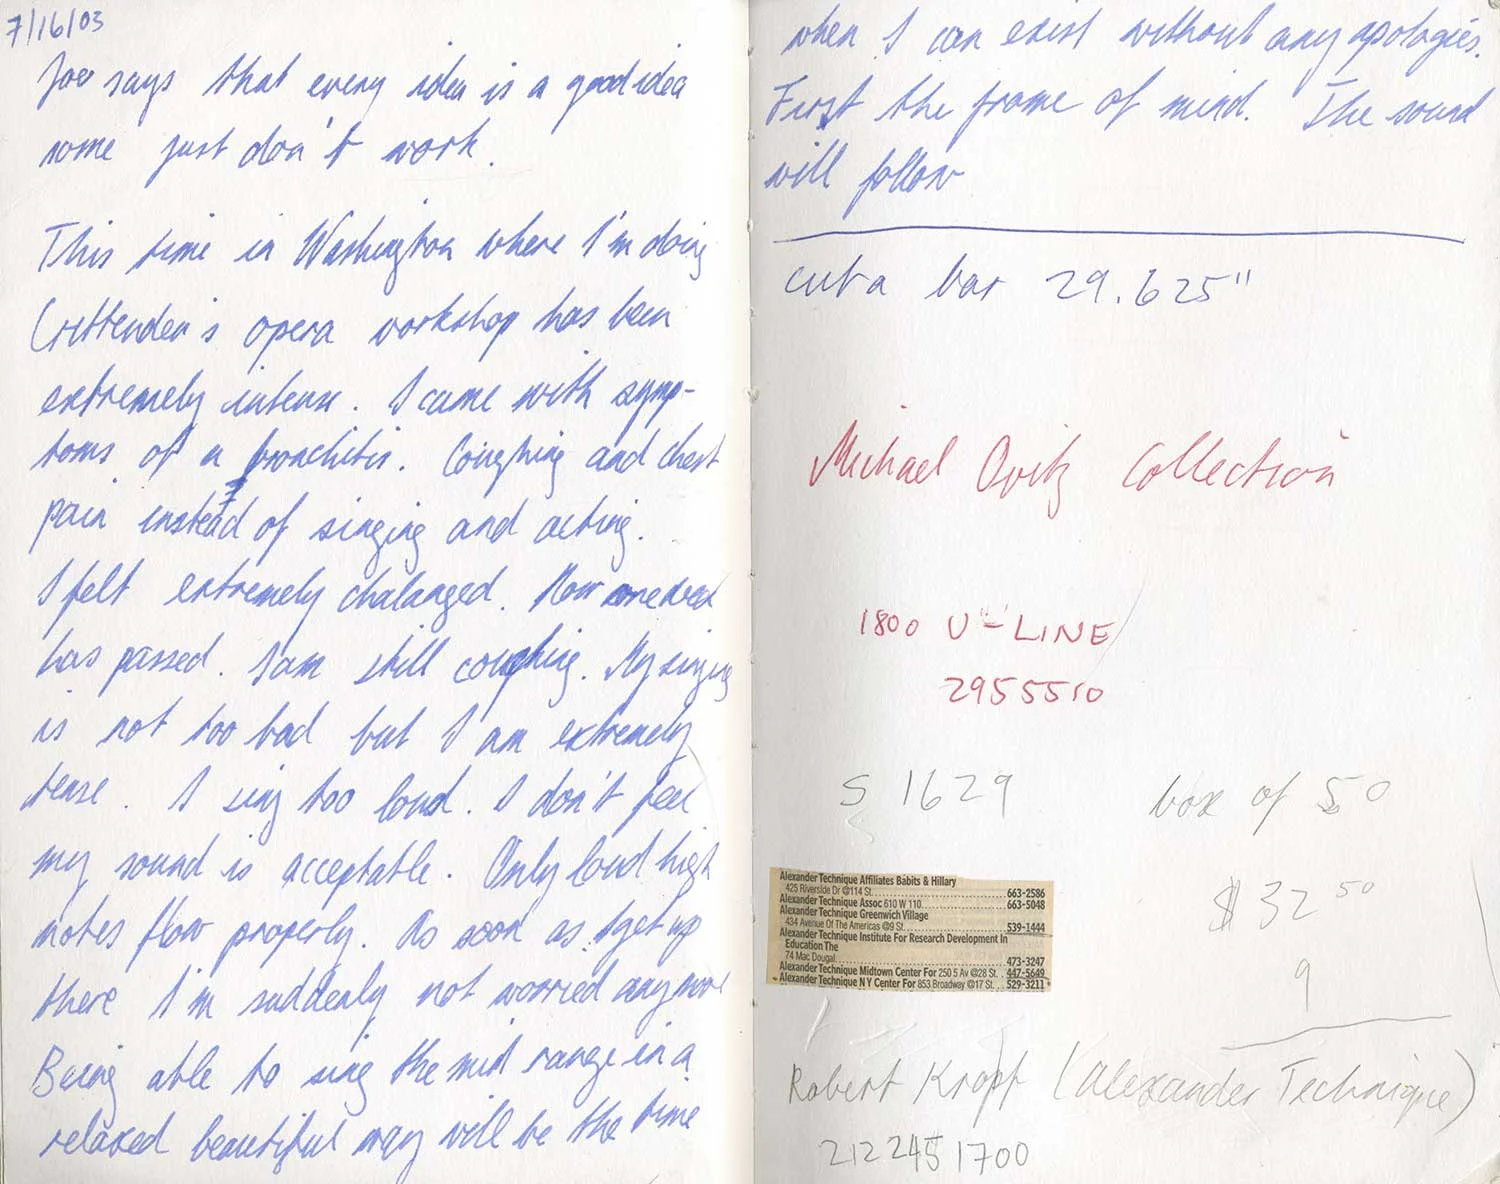 7/16/03
Joe says that every idea is a good idea
some just don't work.
This time in Washington where I'm doing
Crittenden's opera workshop has been
extremely intense. I came with symp-
toms of a bronchitis. Coughing and chest
pain instead of singing and acting.
I felt extremely chalanged. Now one week
has passed. I am still coughing. My singing
is not too bad but I am extremely
tense. I sing too loud. I don't feel
my sound is acceptable. Only loud high
notes flow properly. As soon as I get up
there I'm suddenly not worried anymore
Being able to sing the mid range in a
relaxed beautiful way will be the time
when I can exist without any apologies.
First the frame of mind. The sound
will follow
cut a bar 29.625"
Michael Ovitz Collection
1800 U-LINE
2955510
S 1629 box of 50
$32 50
9
Alexander Technique Affiliates Babits & Hillary
425 Riverside Dr @114 St. 663-2586
Alexander Technique Assoc 610 W 110 663-5048
Alexander Technique Greenwich Village
434 Avenue Of The Americas @9 St. 539-1444
Alexander Technique Institute For Research Development In
Education The
74 Mac Dougal 473-3247
Alexander Technique Midtown Center For 250 5 Av @28 St. 447-5649
Alexander Technique N Y Center For 853 Broadway @17 St. 529-3211
Robert Kropf (Alexander Technique)
212 245 1700